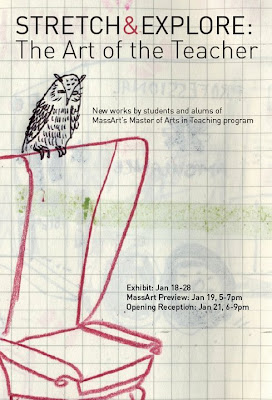 STRETCH&EXPLORE:
The Art of the Teacher
New works by students and alums of
MassArt's Master of Arts in Teaching program
Exhibit: Jan 18-28
MassArt Preview: Jan 19, 5-7pm
Opening Reception: Jan 21, 6-9pm